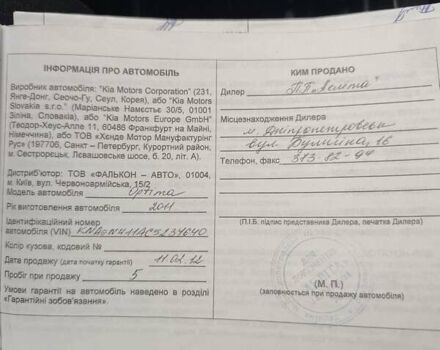 ІНФОРМАЦІЯ ПРО АВТОМОБІЛЬ
Виробник автомобіля: "Kia Motors Corporation" (231,
Янге-Донг, Сеочо-Гу, Сеул, Корея), або "Kia Motors
Slovakia s.r.o." (Маріанське Намєстіє 30/5, 01001
Зіліна, Словакія), або "Kia Motors Europe GmbH"
(Теодор-Хеус-Алле 11, 60486 Франкфурт на Майні,
Німеччина), або ТОВ «Хенде Мотор Мануфактурінг
Рус» (197706, Санкт – Петербург, Курортний район,
м. Сестрорецьк, Левашовське шосе, б. 20, літ. А).
Дистриб'ютор: ТОВ «ФАЛЬКОН – АВТО», 01004,
м. Київ, вул. Червоноармійська, 15/2
Модель автомобіля Optima
Рік виготовлення автомобіля 2011
Ідентифікаційний номер
автомобіля (VIN)
Колір кузова, кодовий №
Дата продажу (дата початку гарантії) 11.02.12
Пробіг при продажу 5
Умови гарантії на автомобіль наведено в розділі
«Гарантійні зобов'язання».
КИМ ПРОДАНО
Дилер
Місцезнаходження Дилера
м. Дніпропетровськ
вул.
Телефон, факс 373-12-94
(П.І.Б. підпис представника Дилера, печатка Дилера)
(М. П.)
(заповнюється при продажу автомобіля)